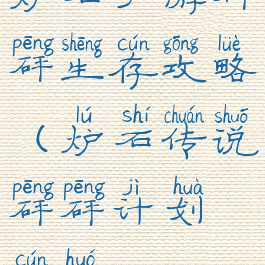 pēng shēng cún gōng lüè
砰生存攻略
lú shí chuán shuō
(炉石传说
pēng pēng jì huà
砰砰计划
cún huó